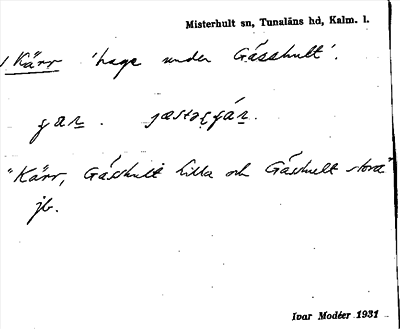 Misterhult sn, Tunaläns hd, Kalm. l.
Kärr 'hage under Gässhult'.
"Kärr, Gässhult lilla och Gässhult stora"
jb.
Ivar Modéer 1931